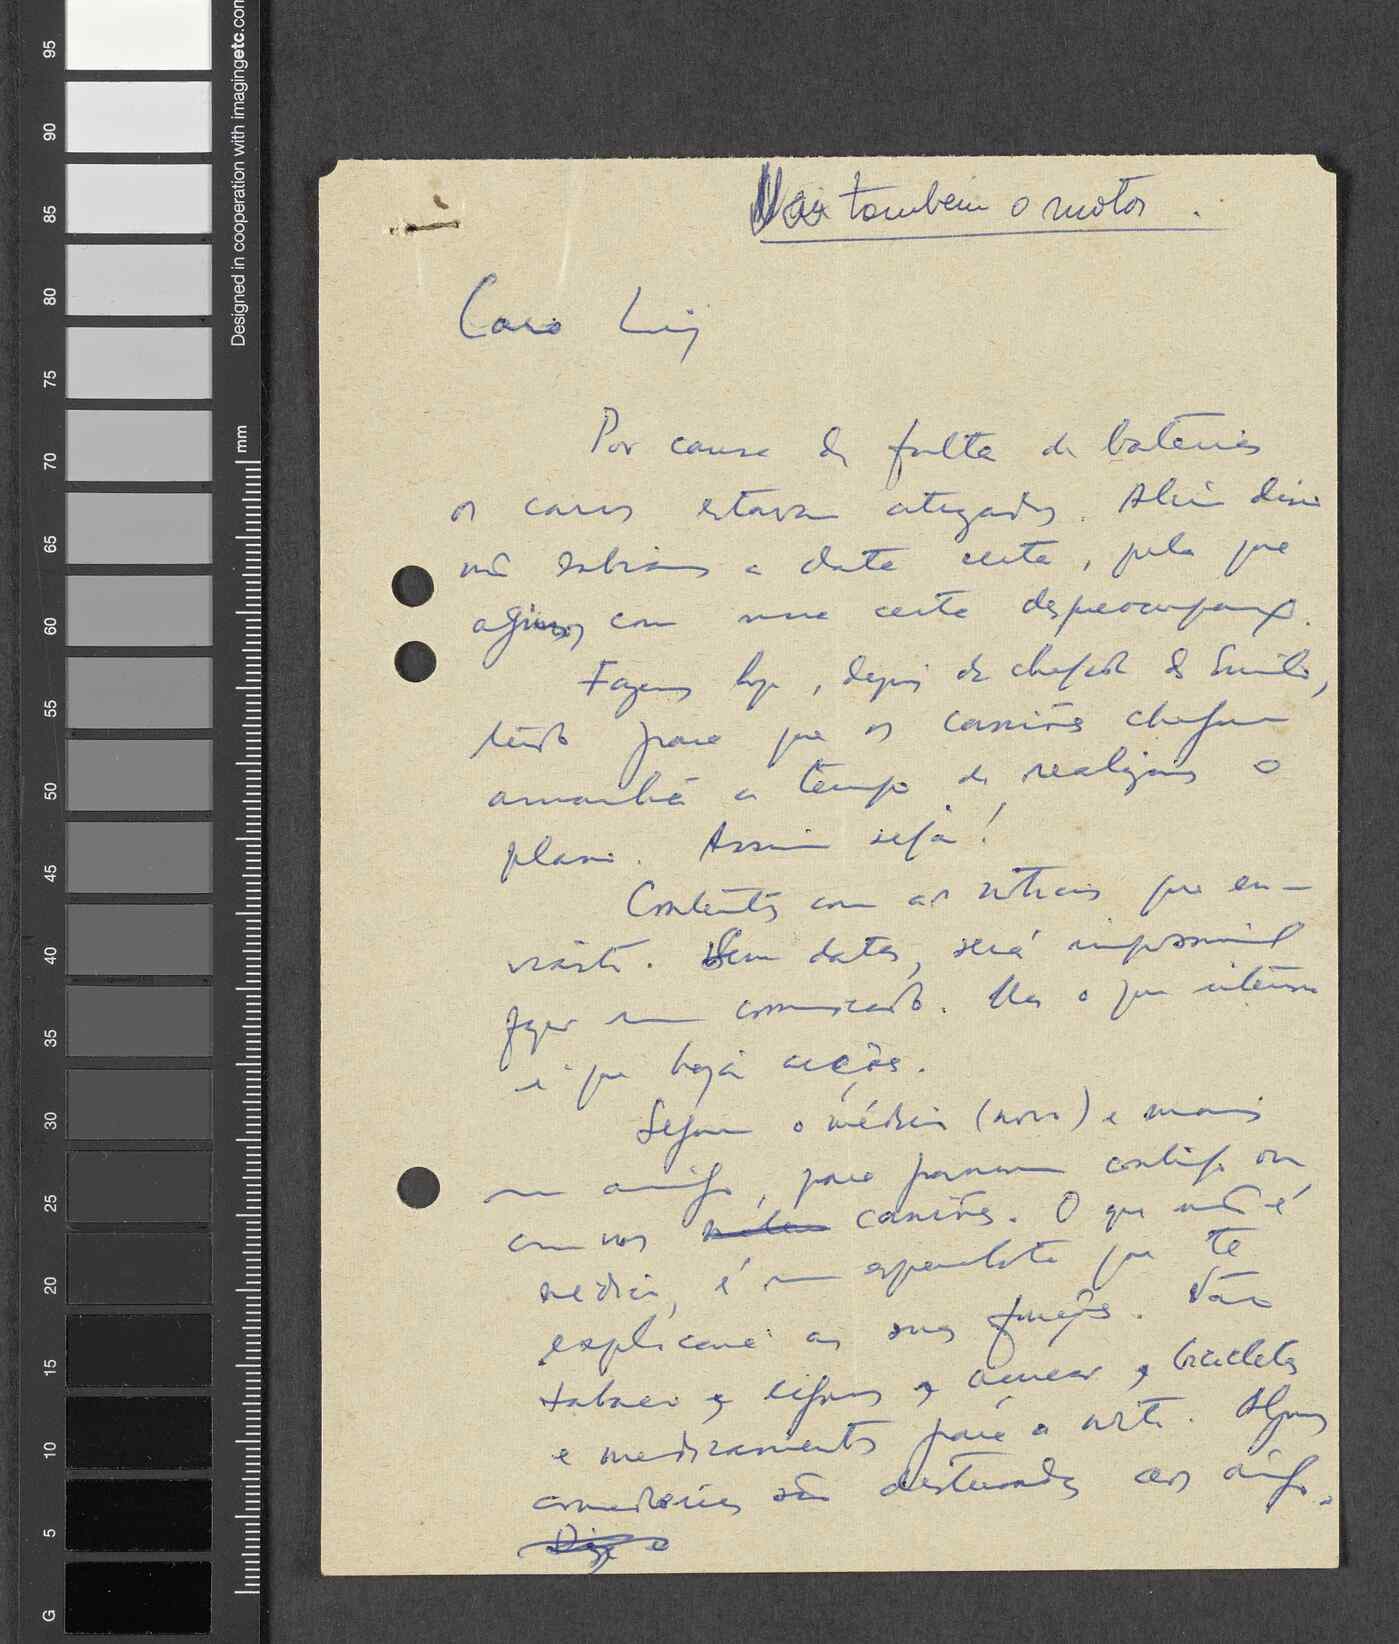 Designed in cooperation with imagingetc.com
mm
95
90
85
80
75
70
65
60
55
50
45
40
35
30
25
20
15
10
5
G
Vai também o motor.
Caro Luij
Por causa da falta de baterias
os carros estavam atrazados. Além disso
não sabiamos a data certa, pelo que
agimos com uma certa despreocupação.
Fazemos hoje, depois da chegada do Emilio,
tudo para que os camiões cheguem
amanhã a tempo de realizarmos o
plano. Assim seja!
Contentes com as noticias que en-
viaste. Sem datas, será impossivel
fazer um comunicado. Mas o que interessa
é que haja acções.
Segue o médico (novo) e mais
um amigo, para contigo ou
com vos camiões. O que não é
médico, é um que te
explicará as suas funções. Vão
tabaco e cigarros e açucar e bicicletas
e medicamentos para a noite. Alguns
são destinados aos amigos.
Diz o